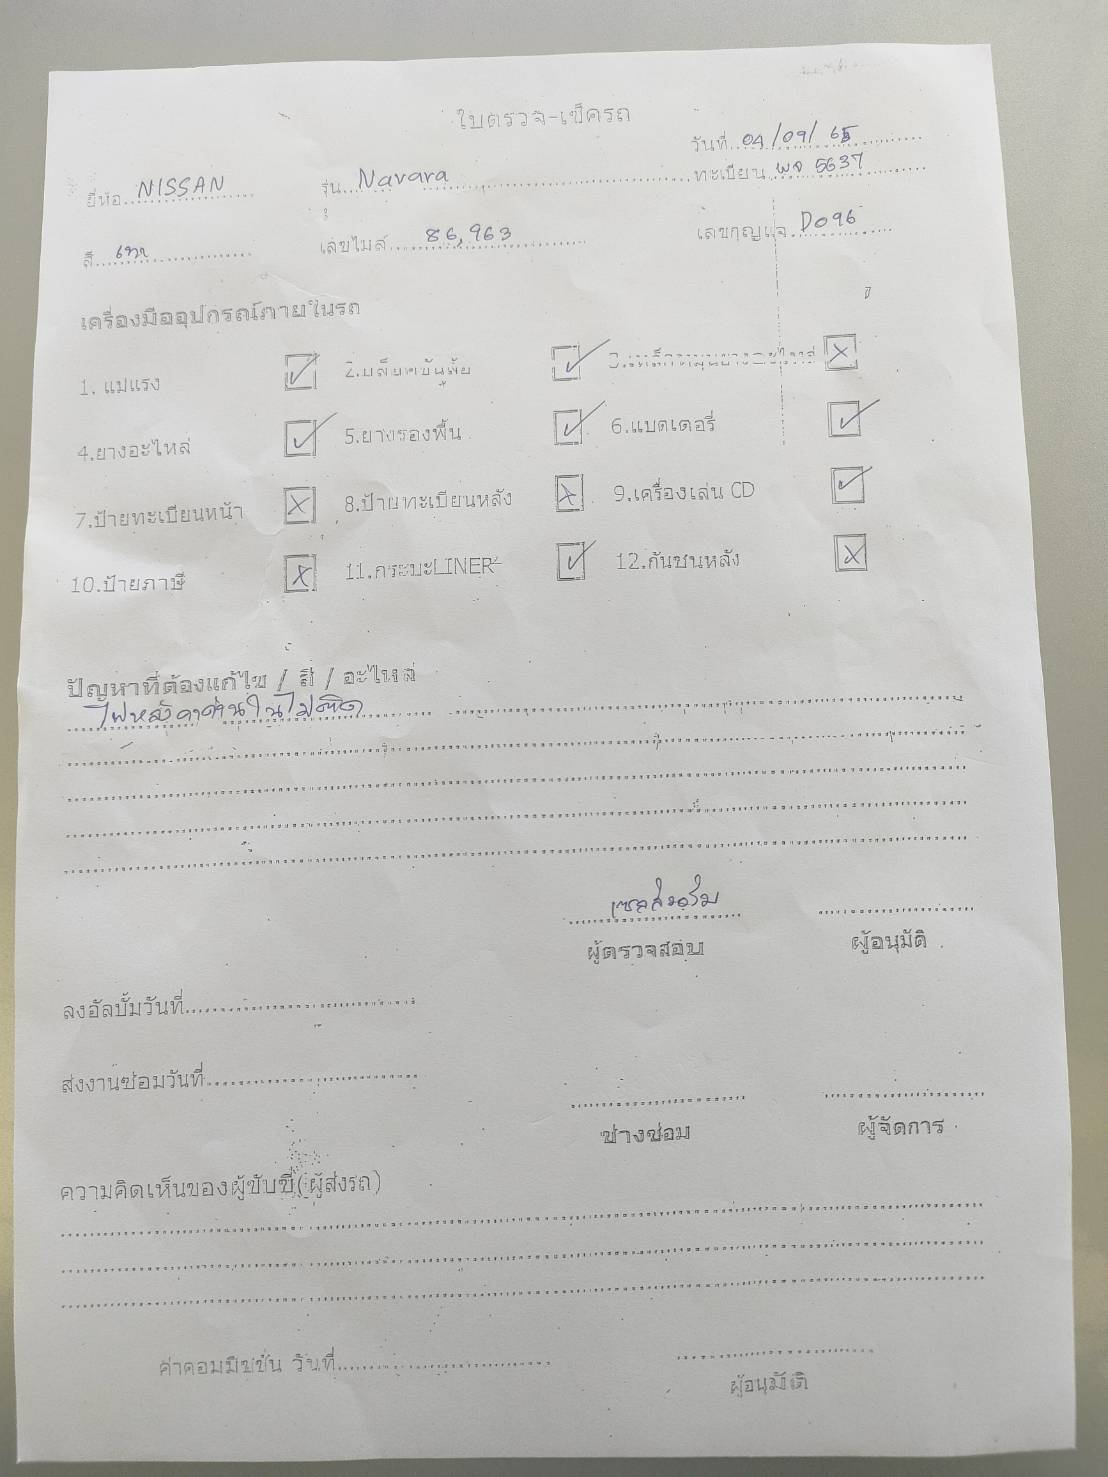 ใบตรวจ-เช็ครถ
วันที่ 04/09/65
ยี่ห้อ NISSAN รุ่น Navara ทะเบียน ผจ 5637
สี เทา เลขไมล์ 86,963 เลขกุญแจ D096
เครื่องมืออุปกรณ์ภายในรถ
1. แม่แรง ✓ 2.บล็อคขันล้อ ✓ 3. X
4.ยางอะไหล่ ✓ 5.ยางรองพื้น ✓ 6.แบตเตอรี่ ✓
7.ป้ายทะเบียนหน้า X 8.ป้ายทะเบียนหลัง X 9.เครื่องเล่น CD ✓
10.ป้ายภาษี X 11.กระบะLINER ✓ 12.กันชนหลัง X
ปัญหาที่ต้องแก้ไข / สี / อะไหล่
ไฟหลังคาด้านในไม่ติด
ผู้ตรวจสอบ ผู้อนุมัติ
ลงอัลบั้มวันที่
ส่งงานซ่อมวันที่
ช่างซ่อม ผู้จัดการ
ความคิดเห็นของผู้ขับขี่(ผู้ส่งรถ)
ค่าคอมมิชชั่น วันที่
ผู้อนุมัติ